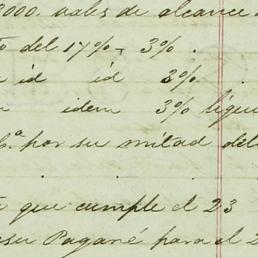 3000. vales de alcance
del 17% y 3%.
id id 3%.
idem 3% liqui
C.ª por su mitad del
que cumple el 23
su Pagaré para el 2